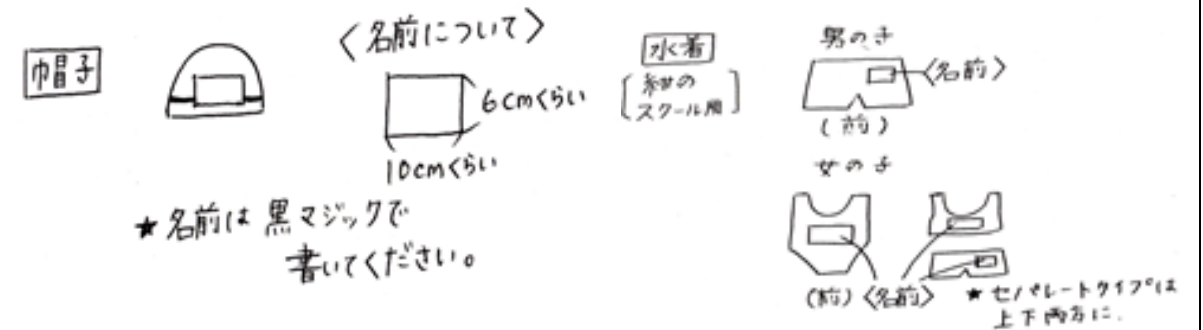 帽子
〈名前について〉
6cmくらい
10cmくらい
★名前は黒マジックで
書いてください。
水着
紺の
スクール用
男の子
〈名前〉
(前)
女の子
(前)〈名前〉
★セパレートタイプは
上下両方に.